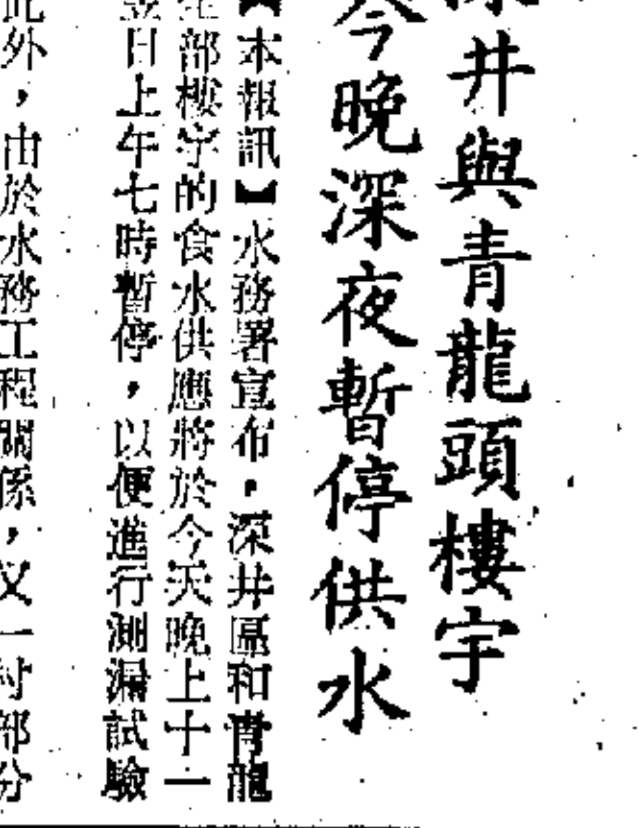 深井與青龍頭樓宇
今晚深夜暫停供水
【本報訊】水務署宣布,深井區和青龍
部樓宇的食水供應將於今天晚上十一
翌日上午七時暫停,以便進行測漏試驗
此外,由於水務工程關係,又一村部分